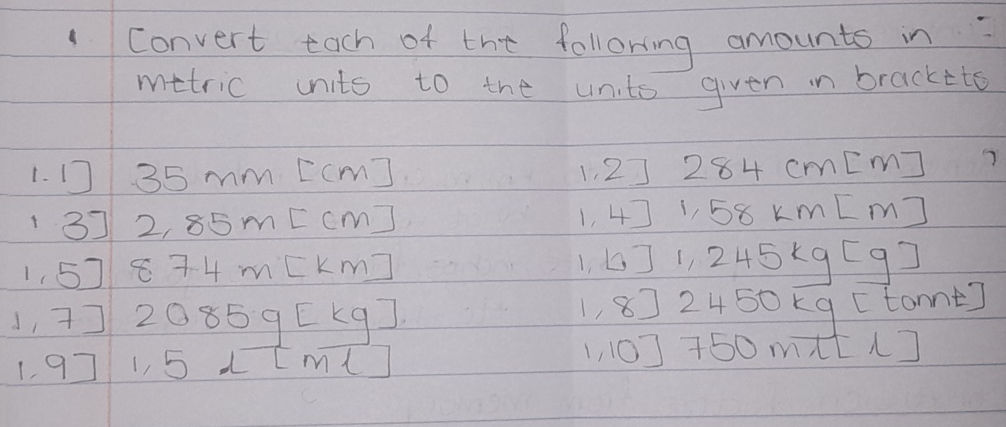 Convert each of the following amounts in
metric units to the units given in brackets
1.1] 35 mm [cm] 1,2] 284 cm [m]
1 3] 2,85 m [cm] 1,4] 1,58 km [m]
1,5] 874 m [km] 1,6] 1,245 kg [g]
1,7] 2085 g [kg]. 1,8] 2450 kg [tonne]
1.9] 1,5 l [ml] 1,10] 750 ml [l]